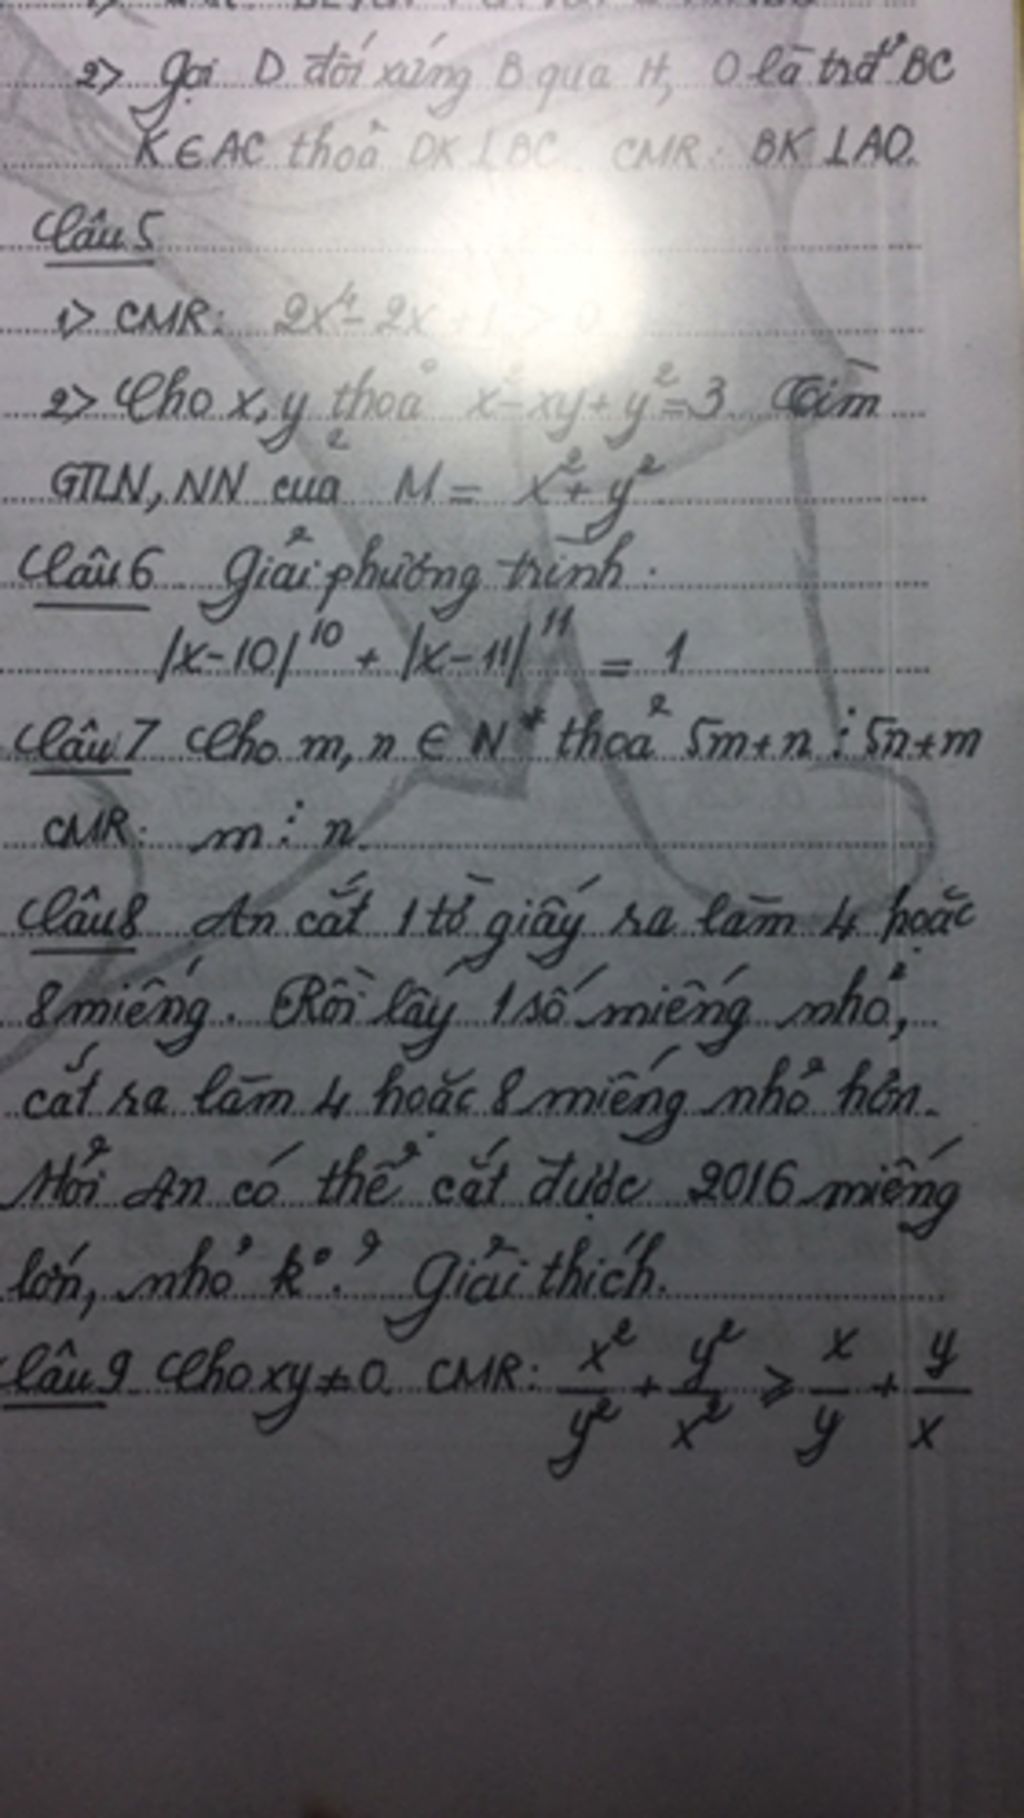 2> Gọi D đối xứng B qua H, O là trđ BC
K ∈ AC thoả DK ⊥ BC. CMR: BK ⊥ AO.
Câu 5
1> CMR: 2x⁴ - 2x + 1 > 0
2> Cho x, y thoả x² - xy + y² = 3. Tìm
GTLN, NN của M = x² + y²
Câu 6 Giải phương trình.
|x-10|¹⁰ + |x-11|¹¹ = 1
Câu 7 Cho m, n ∈ N* thoả 5m+n ⋮ 5n+m
CMR: m ⋮ n.
Câu 8 An cắt 1 tờ giấy ra làm 4 hoặc
8 miếng. Rồi lấy 1 số miếng nhỏ,
cắt ra làm 4 hoặc 8 miếng nhỏ hơn.
Hỏi An có thể cắt được 2016 miếng
lớn, nhỏ k°? Giải thích.
Câu 9 Cho xy ≠ 0. CMR: x²/y² + y²/x² ≥ x/y + y/x